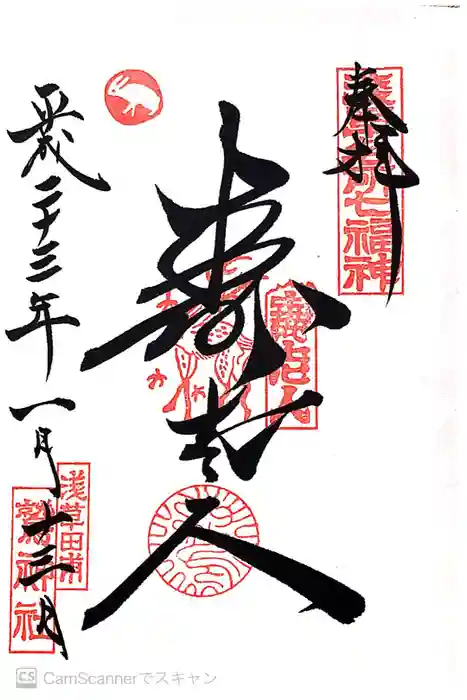 奉拝
浅草名所七福神
寿老人
壽老人
平成二十三年一月十三日
浅草田甫
鷲神社
CS CamScannerでスキャン